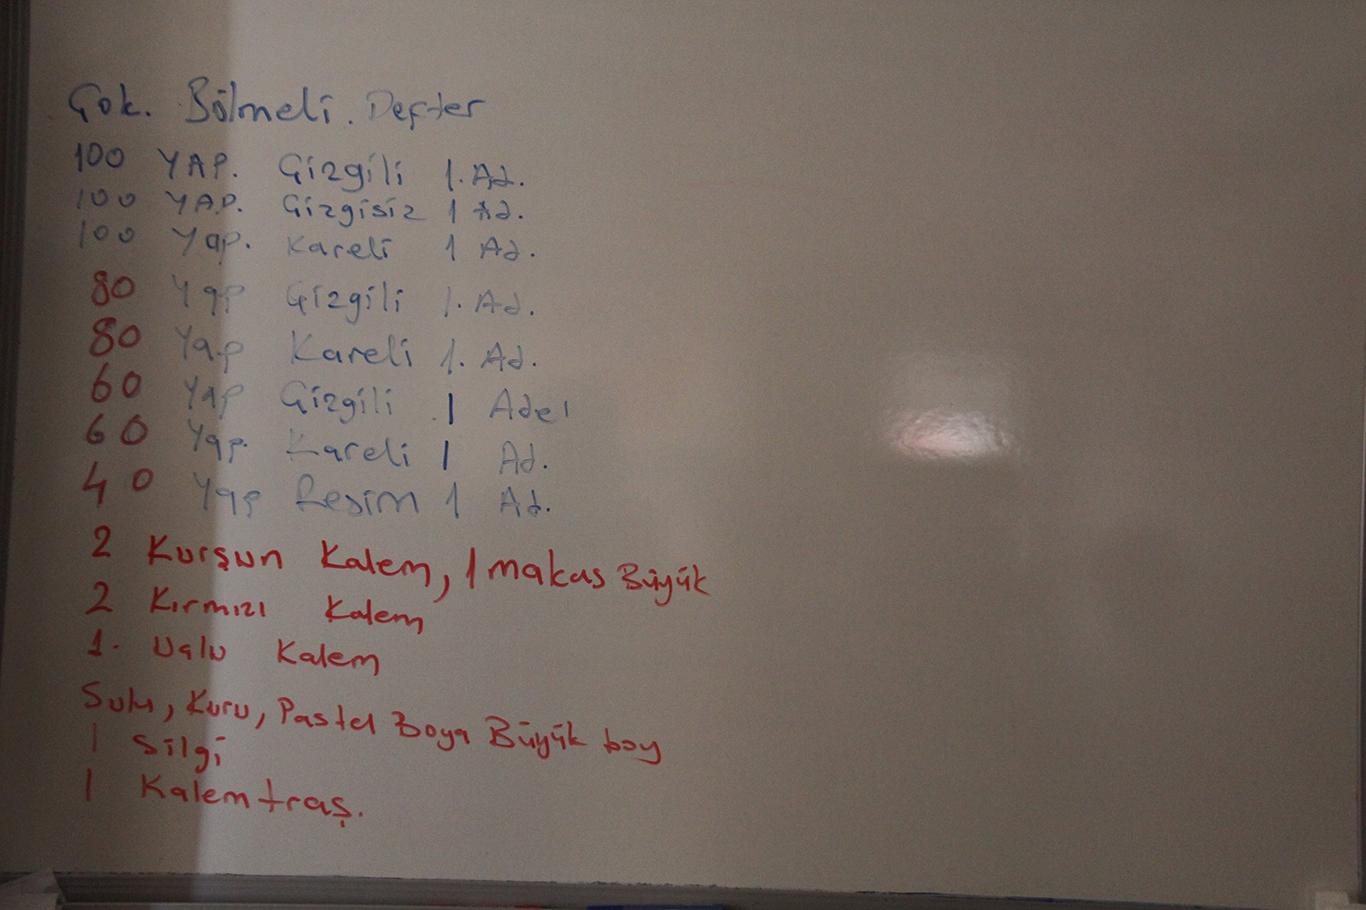 Çok. Bölmeli. Defter
100 YAP. Çizgili 1. Ad.
100 YAP. Çizgisiz 1 Ad.
100 Yap. Kareli 1 Ad.
80 Yap Çizgili 1. Ad.
80 Yap Kareli 1. Ad.
60 YAP Çizgili 1 Adet
60 Yap. Kareli 1 Ad.
40 Yap Resim 1 Ad.
2 Kurşun Kalem, 1 makas Büyük
2 Kırmızı Kalem
1. Uçlu Kalem
Sulu, Kuru, Pastel Boya Büyük boy
1 Silgi
1 Kalemtraş.